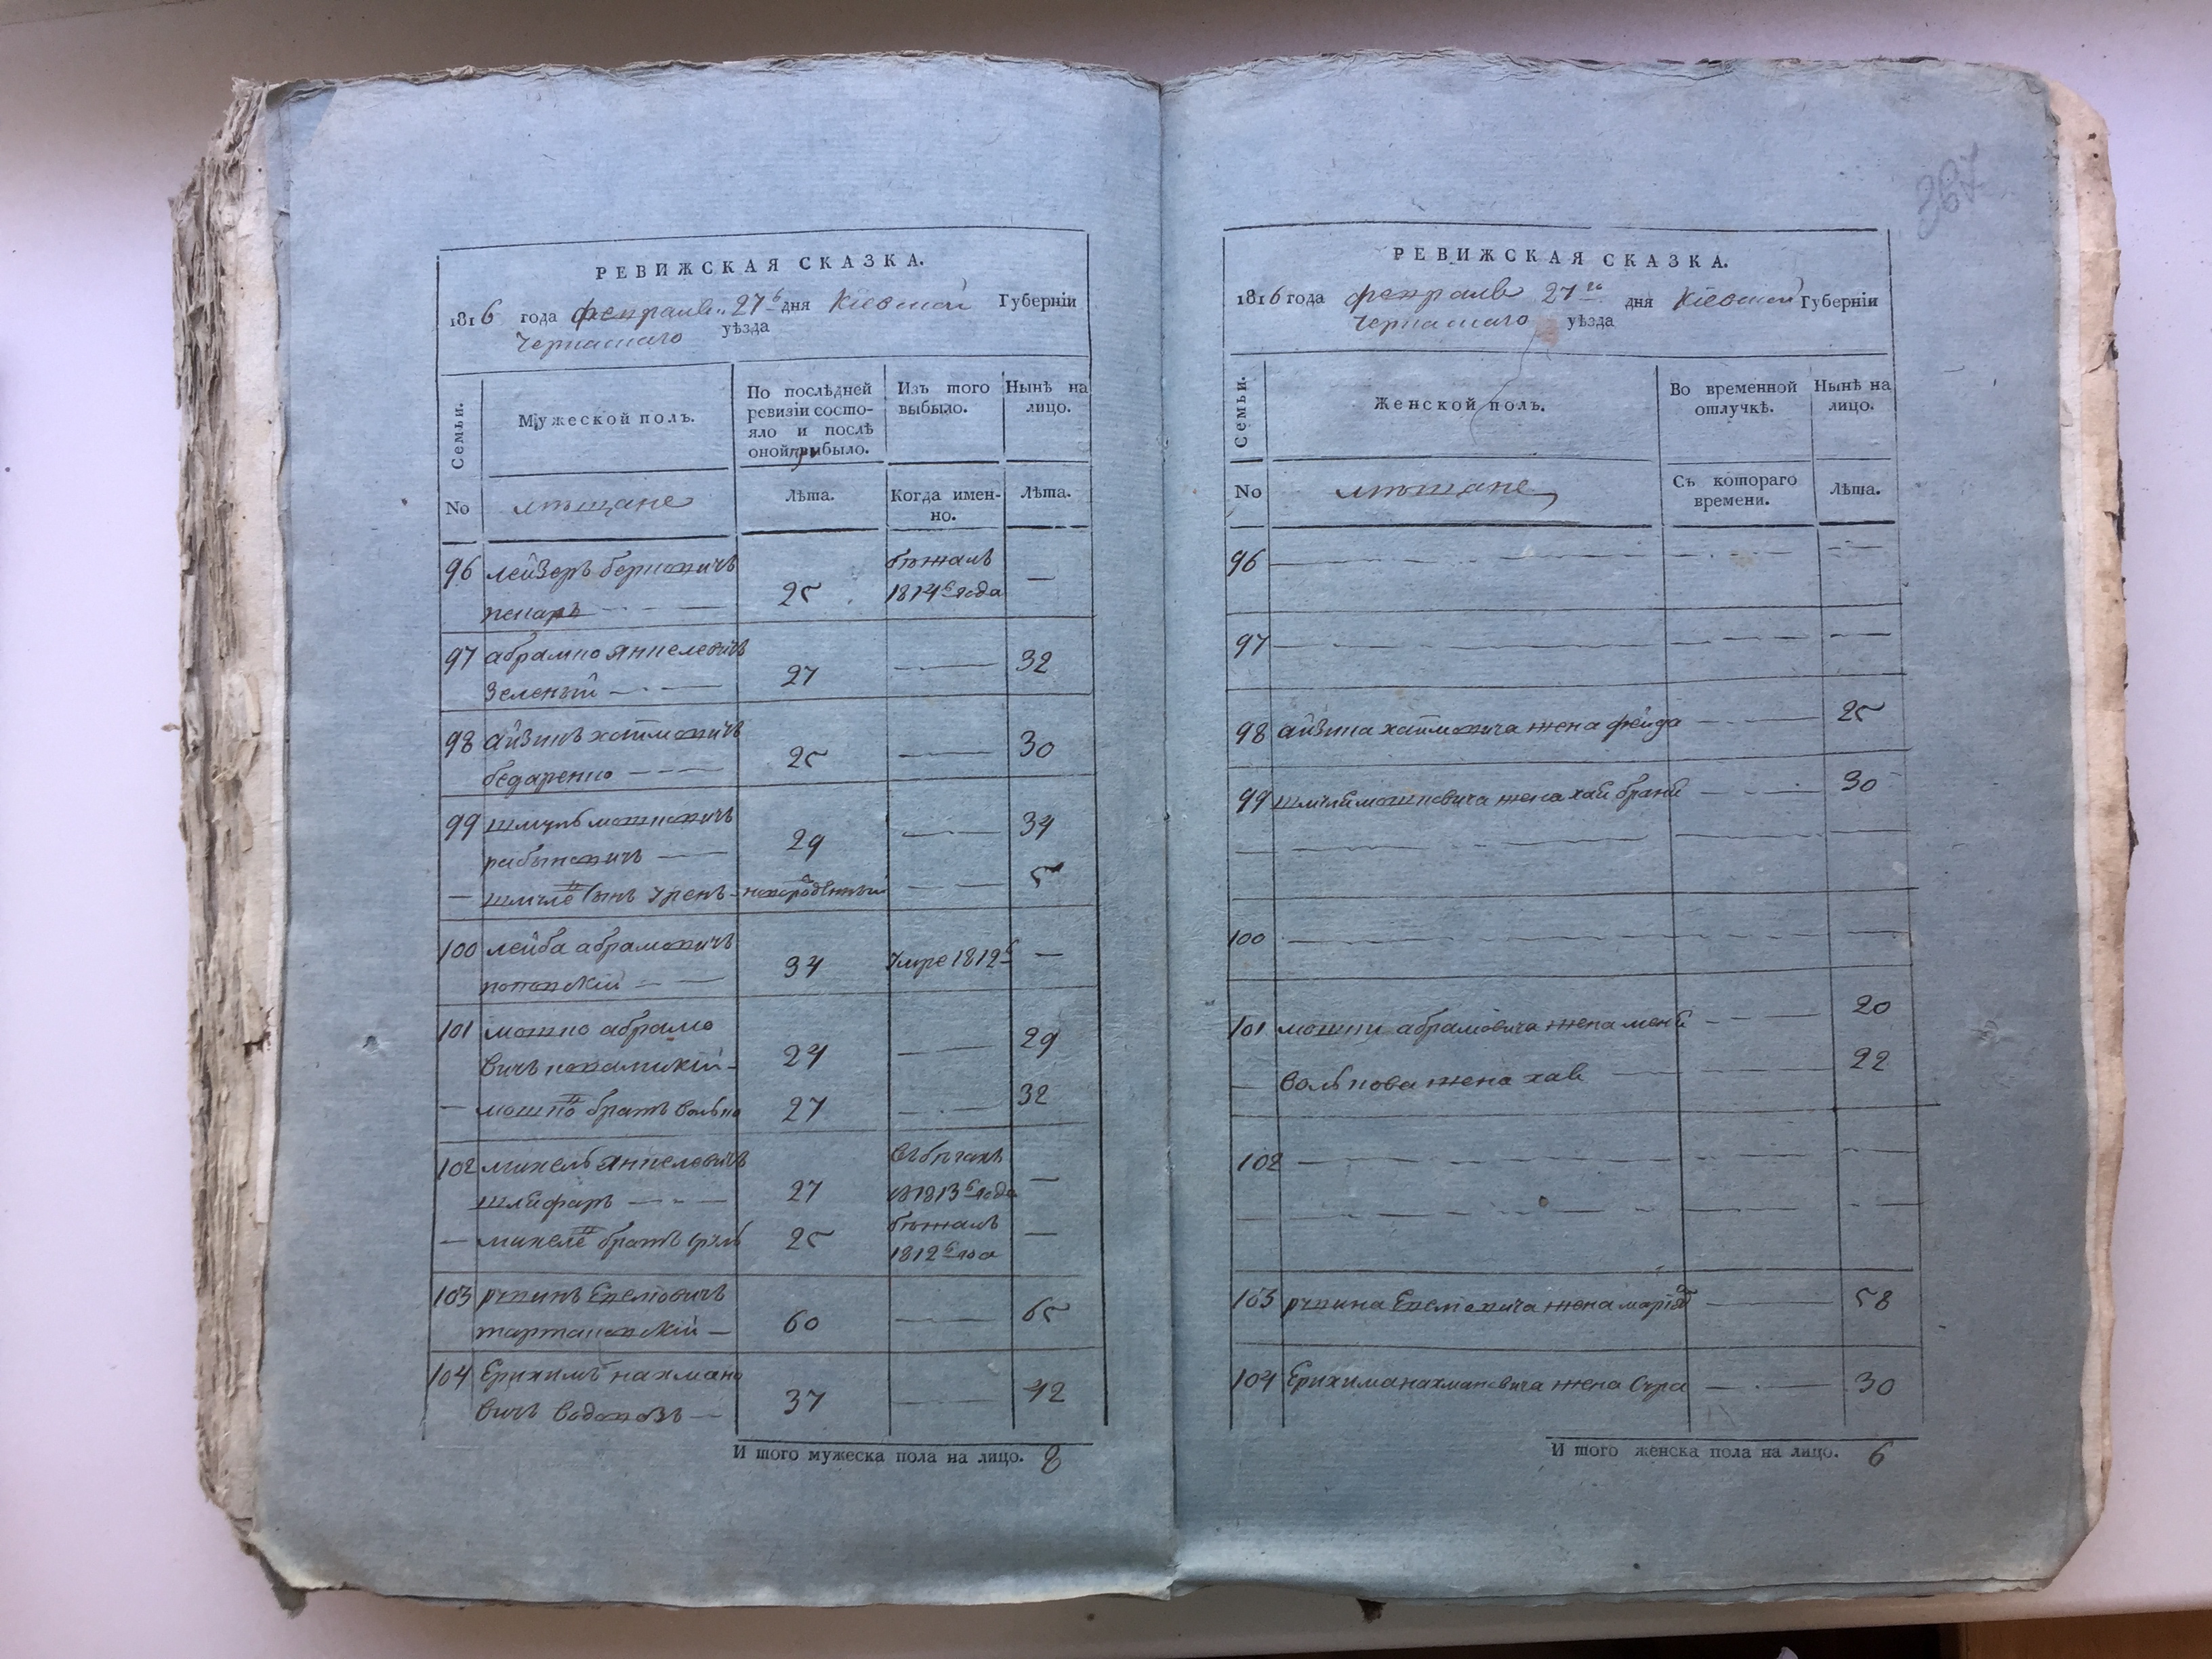 РЕВИЖСКАЯ СКАЗКА.
1816 года февраля 27 дня Кіевской Губерніи
Черкаскаго уѣзда
Семьи.
Мужеской полъ.
По послѣдней
ревизіи состо-
яло и послѣ
оной прибыло.
Изъ того
выбыло.
Нынѣ на
лицо.
No
мѣщане
Лѣта.
Когда имен-
но.
Лѣта.
96 лейзеръ берковичъ бѣжалъ
25 1814 года —
97 абрамко янкелевичъ
зеленый 27 — 32
98 айзикъ хаймовичъ
бедаренко 25 — 30
99 шмуль мошковичъ 34
рабиновичъ 29 —
— шмуля сынъ новорожденный — 5
100 лейба абрамовичъ
34 умре 1812 —
101 мошко абрамо
вичъ 24 — 29
— мошко братъ волько 27 — 32
102 михель янкелевичъ въ бѣгахъ
шлифаръ 27 1813 года —
— михеля братъ сруль 25 бѣжалъ —
1812 года
103
60 — 65
104 нахмано
вичъ 37 — 42
И того мужеска пола на лицо. 8
367
РЕВИЖСКАЯ СКАЗКА.
1816 года февраля 27 дня Кіевской Губерніи
Черкаскаго уѣзда
Семьи.
Женской полъ.
Во временной
отлучкѣ.
Нынѣ на
лицо.
No
мѣщане
Съ котораго
времени.
Лѣта.
96 — — —
97 — — —
98 айзика хаймовича жена фейга — 25
99 шмуля мошковича жена — 30
100 — — —
101 мошки абрамовича жена — 20
— волькова жена хая — 22
102 — — —
103 жена — 58
104 нахмановича жена сура — 30
И того женска пола на лицо. 6